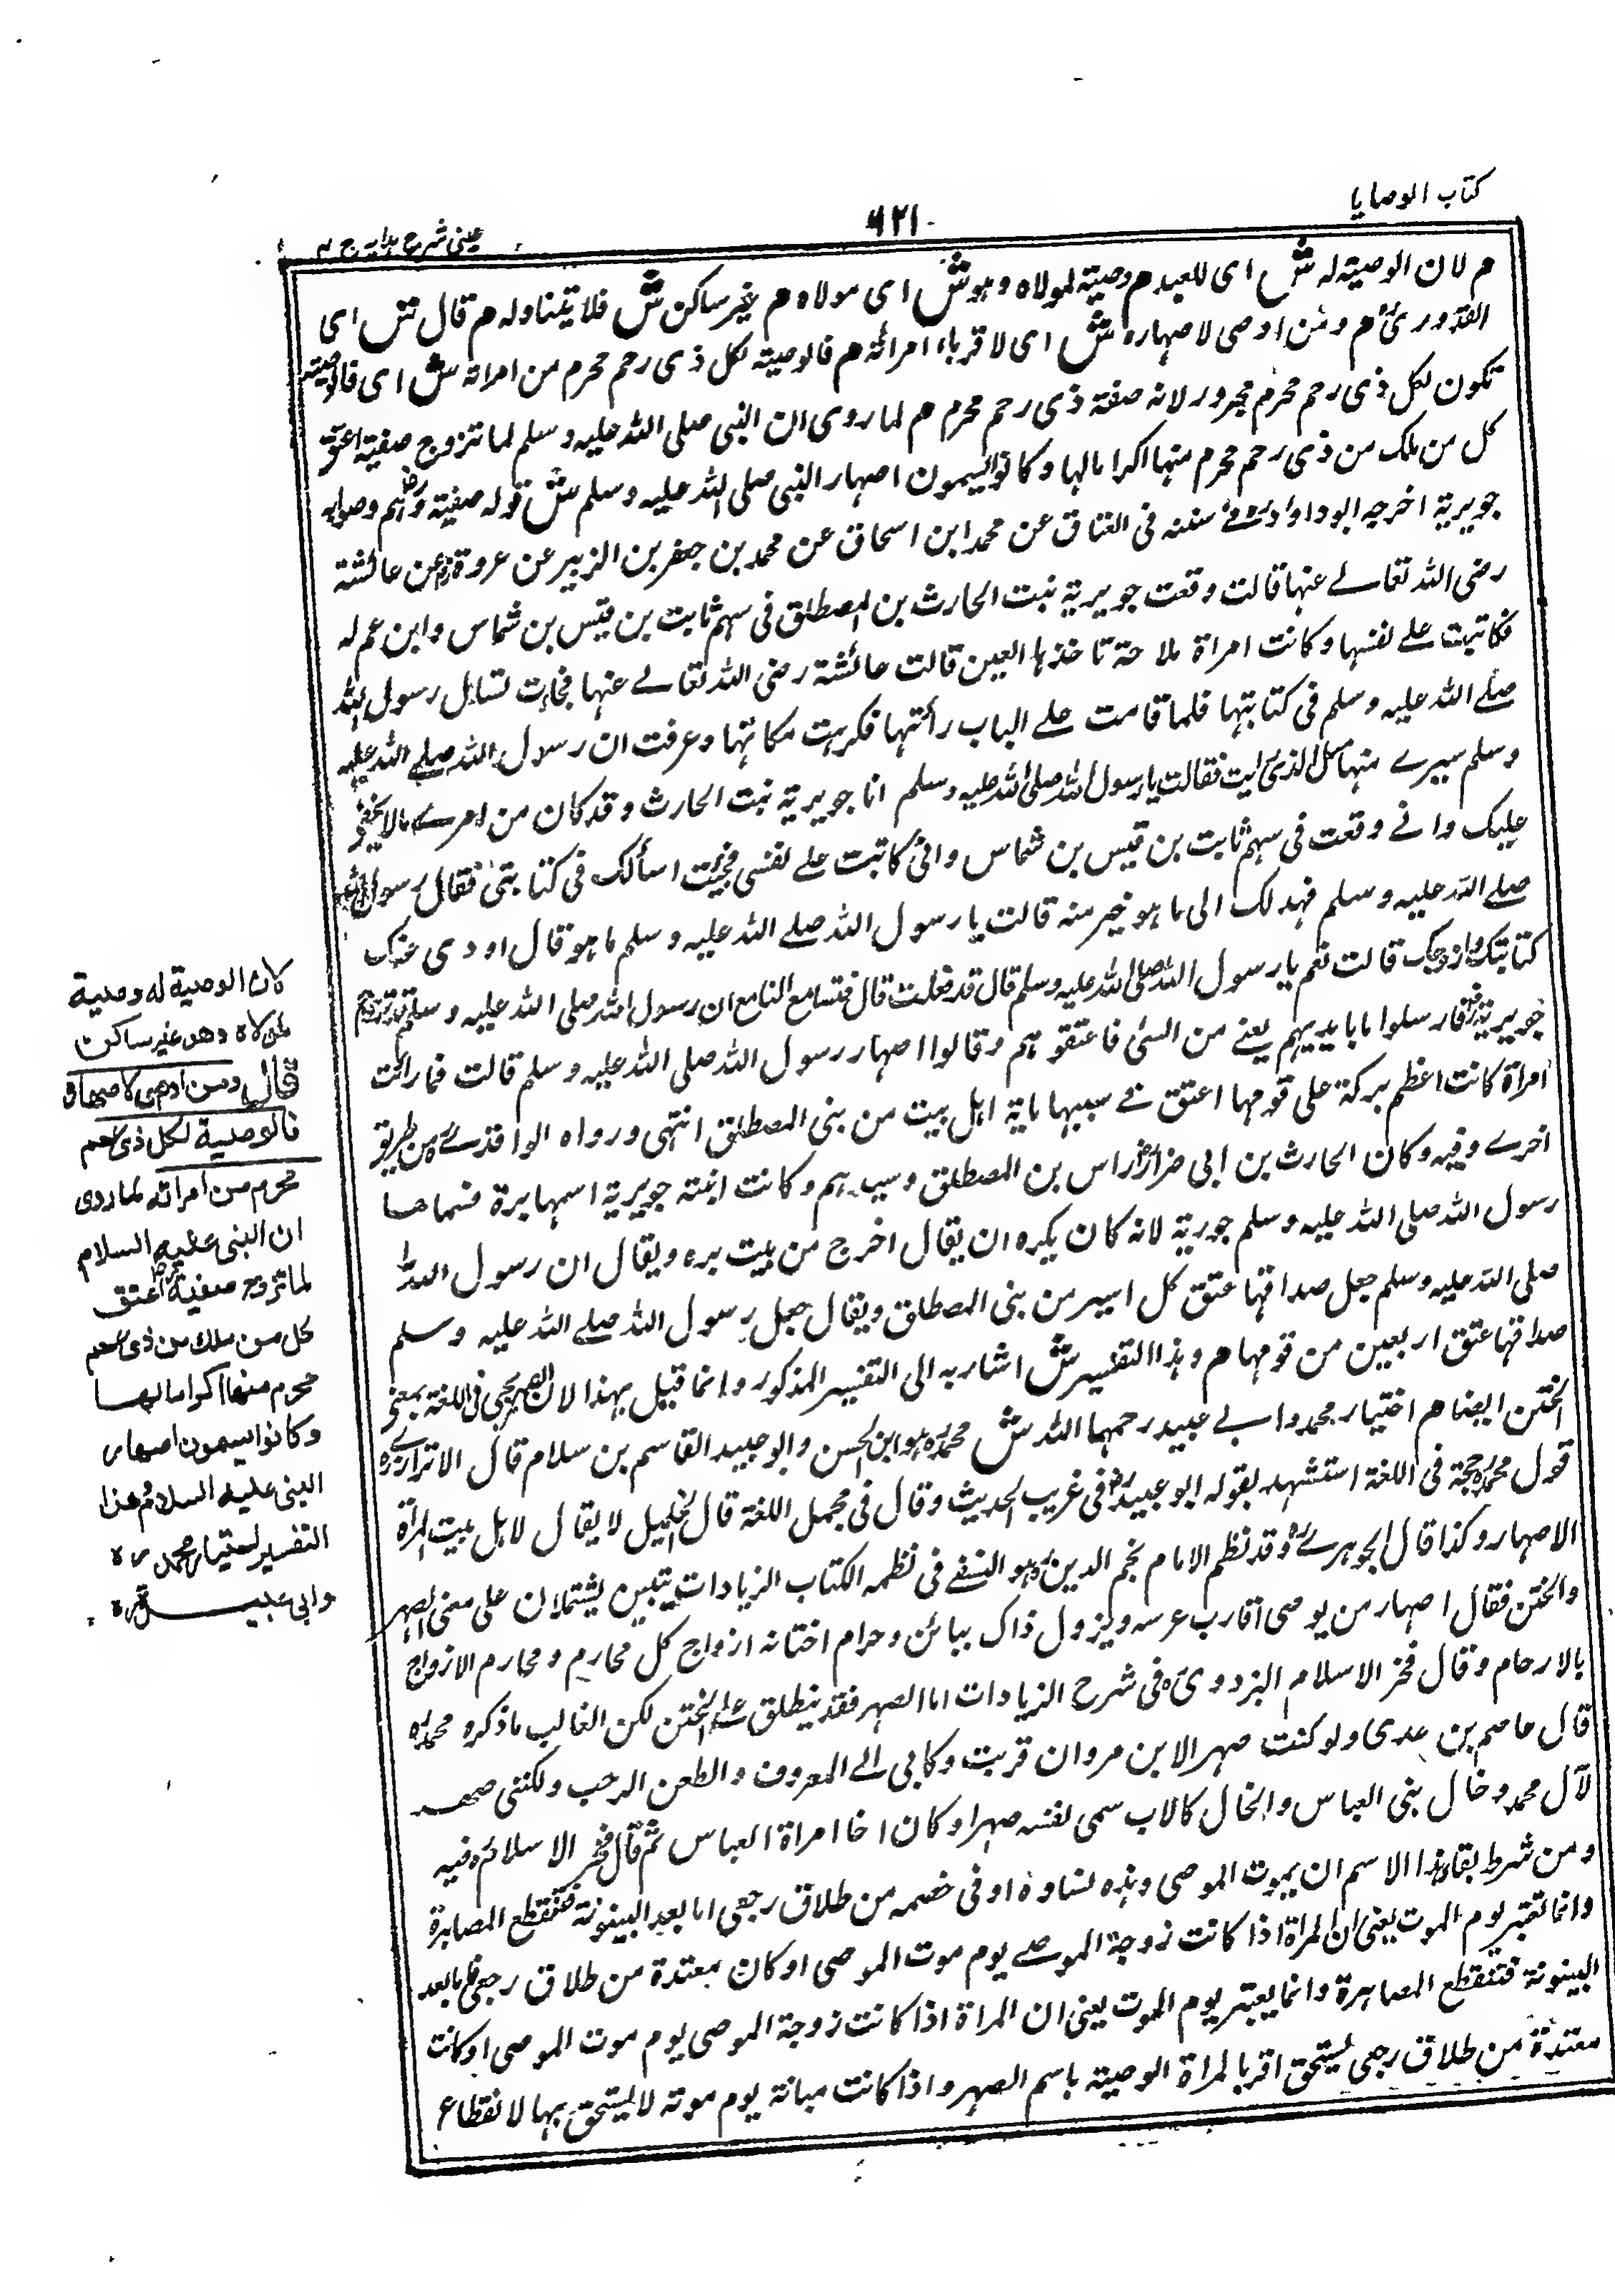 كتاب الوصايا
٦٢١
عينى شرح هدايہ ج ٤
م لان الوصية له ش اى للعبد م وصية لمولاه وهو ش اى مولاه م غير ساكن ش فلا يتناوله م قال ش اى
القدورىؒ م ومن اوصى لاصهاره ش اى لاقرباء امرأته م فالوصية لكل ذى رحم محرم من امراته ش اى فالوصية
تكون لكل ذى رحم محرم مجرور لانه صفة ذى رحم محرم م لما روى ان النبى صلى الله عليه وسلم لما تزوج صفية اعتق
كل من ملك من ذى رحم محرم منها اكراما لها وكانوا يسمون اصهار النبى صلى الله عليه وسلم ش قوله صفية وهم وصوابه
جويرية اخرجه ابو داود فى سننه فى العتاق عن محمد ابن اسحاق عن محمد بن جعفر بن الزبير عن عروة عن عائشة
رضى الله تعالے عنها قالت وقعت جويرية بنت الحارث بن المصطلق فى سهم ثابت بن قيس بن شماس وابن عم له
فكاتبت علے نفسها وكانت امراة ملاحة تاخذها العين قالت عائشة رضى الله تعالے عنها فجاءت تسايل رسول الله
صلے الله عليه وسلم فى كتابتها فلما قامت علے الباب رأتتها فكرهت مكانها وعرفت ان رسول الله صلے الله عليه
وسلم سيرے منها مثل الذى رايت فقالت يا رسول الله صلى الله عليه وسلم انا جويرية بنت الحارث وقد كان من امرے مالا يخفى
عليك وانے وقعت فى سهم ثابت بن قيس بن شماس وانى كاتبت علے نفسى فجئت اسألك فى كتابتى فقال رسول الله
صلے الله عليه وسلم فهد لك الى ما هو خير منه قالت يا رسول الله صلے الله عليه وسلم ما هو قال اودى عنك
كتابتك وازوجك قالت نعم يا رسول الله صلى الله عليه وسلم قال قد فعلت قال فتسامع النامع ان رسول الله صلى الله عليه وسلم قد تزوج
جويرية فارسلوا ما بايديهم يعنے من السبى فاعتقوهم وقالوا اصهار رسول الله صلى الله عليه وسلم قالت فما رائت
امراة كانت اعظم بركة على قومها اعتق فے سببها ماية اهل بيت من بنى المصطلق انتهى ورواه الواقدے من طريق
اخرے وفيه وكان الحارث بن ابى ضرار راس بن المصطلق وسيدهم وكانت ابنته جويرية اسمها برة فسماها
رسول الله صلى الله عليه وسلم جورية لانه كان يكره ان يقال اخرج من بيت بره ويقال ان رسول الله
صلى الله عليه وسلم جعل صداقها عتق كل اسير من بنى المصطلق ويقال جعل رسول الله صلے الله عليه وسلم
صداقها عتق اربعين من قومها م وهذا التفسير ش اشار به الى التفسير المذكور وانما قيل بهذا لان الصهر يجى فى اللغة بمعنى
الختن ايضا م اختيار محمد وابے عبيد رحمهما الله ش محمد هو ابن الحسن وابو عبيد القاسم بن سلام قال الاترازى
قول محمد حجة فى اللغة استشهد بقوله ابو عبيد فى غريب الحديث وقال فى مجمل اللغة قال الخليل لا يقال لاهل بيت المراة
الاصهار وكذا قال الجوهرے وقد نظم الامام نجم الدين وهو النسفے فى نظمه الكتاب الزيادات بيتين يشتملان على معنى الصهر
والختن فقال اصهار من يوصى اقارب عرسه ويزول ذاك ببائن وحرام اختانه ازواج كل محارم ومحارم الازواج
بالارحام وقال فخر الاسلام البزدوى فى شرح الزيادات اما الصهر فقد ينطلق علے الختن لكن الغالب ما ذكره محمد
قال عاصم بن عدى ولو كنت صهرا لابن مروان قربت وكابى الے المعروف والطعن الرحب ولكننى صهر
لآل محمد وخال بنى العباس والخال كالاب سمى نفسه صهرا وكان اخا امراة العباس ثم قال فخر الاسلام فيه
ومن شرط بقاء هذا الاسم ان يموت الموصى وهذه نساوه او فى خصمه من طلاق رجعى اما بعد البينونة فتنقطع المصاهرة
وانما تعتبر يوم الموت يعنى ان المراة اذا كانت زوجة الموصے يوم موت الموصى او كان معتدة من طلاق رجعى فاما بعد
البينونة فتنقطع المصاهرة وانما يعتبر يوم الموت يعنى ان المراة اذا كانت زوجة الموصى يوم موت الموصى او كانت
معتدة من طلاق رجعى يستحق اقربا المراة الوصية باسم الصهر واذا كانت مبانة يوم موته لا يستحق بها لانقطاع
لان الوصية له وصية
لمولاه وهو غير ساكن
قال ومن اوصى لاصهاره
فالوصية لكل ذى رحم
محرم من امراته لما روى
ان النبى عليه السلام
لما تزوج صفية اعتق
كل من ملك من ذى رحم
محرم منها اكراما لها
وكانوا يسمون اصهار
النبى عليه السلام وهذا
التفسير اختيار محمد ره
وابى عبيد ره